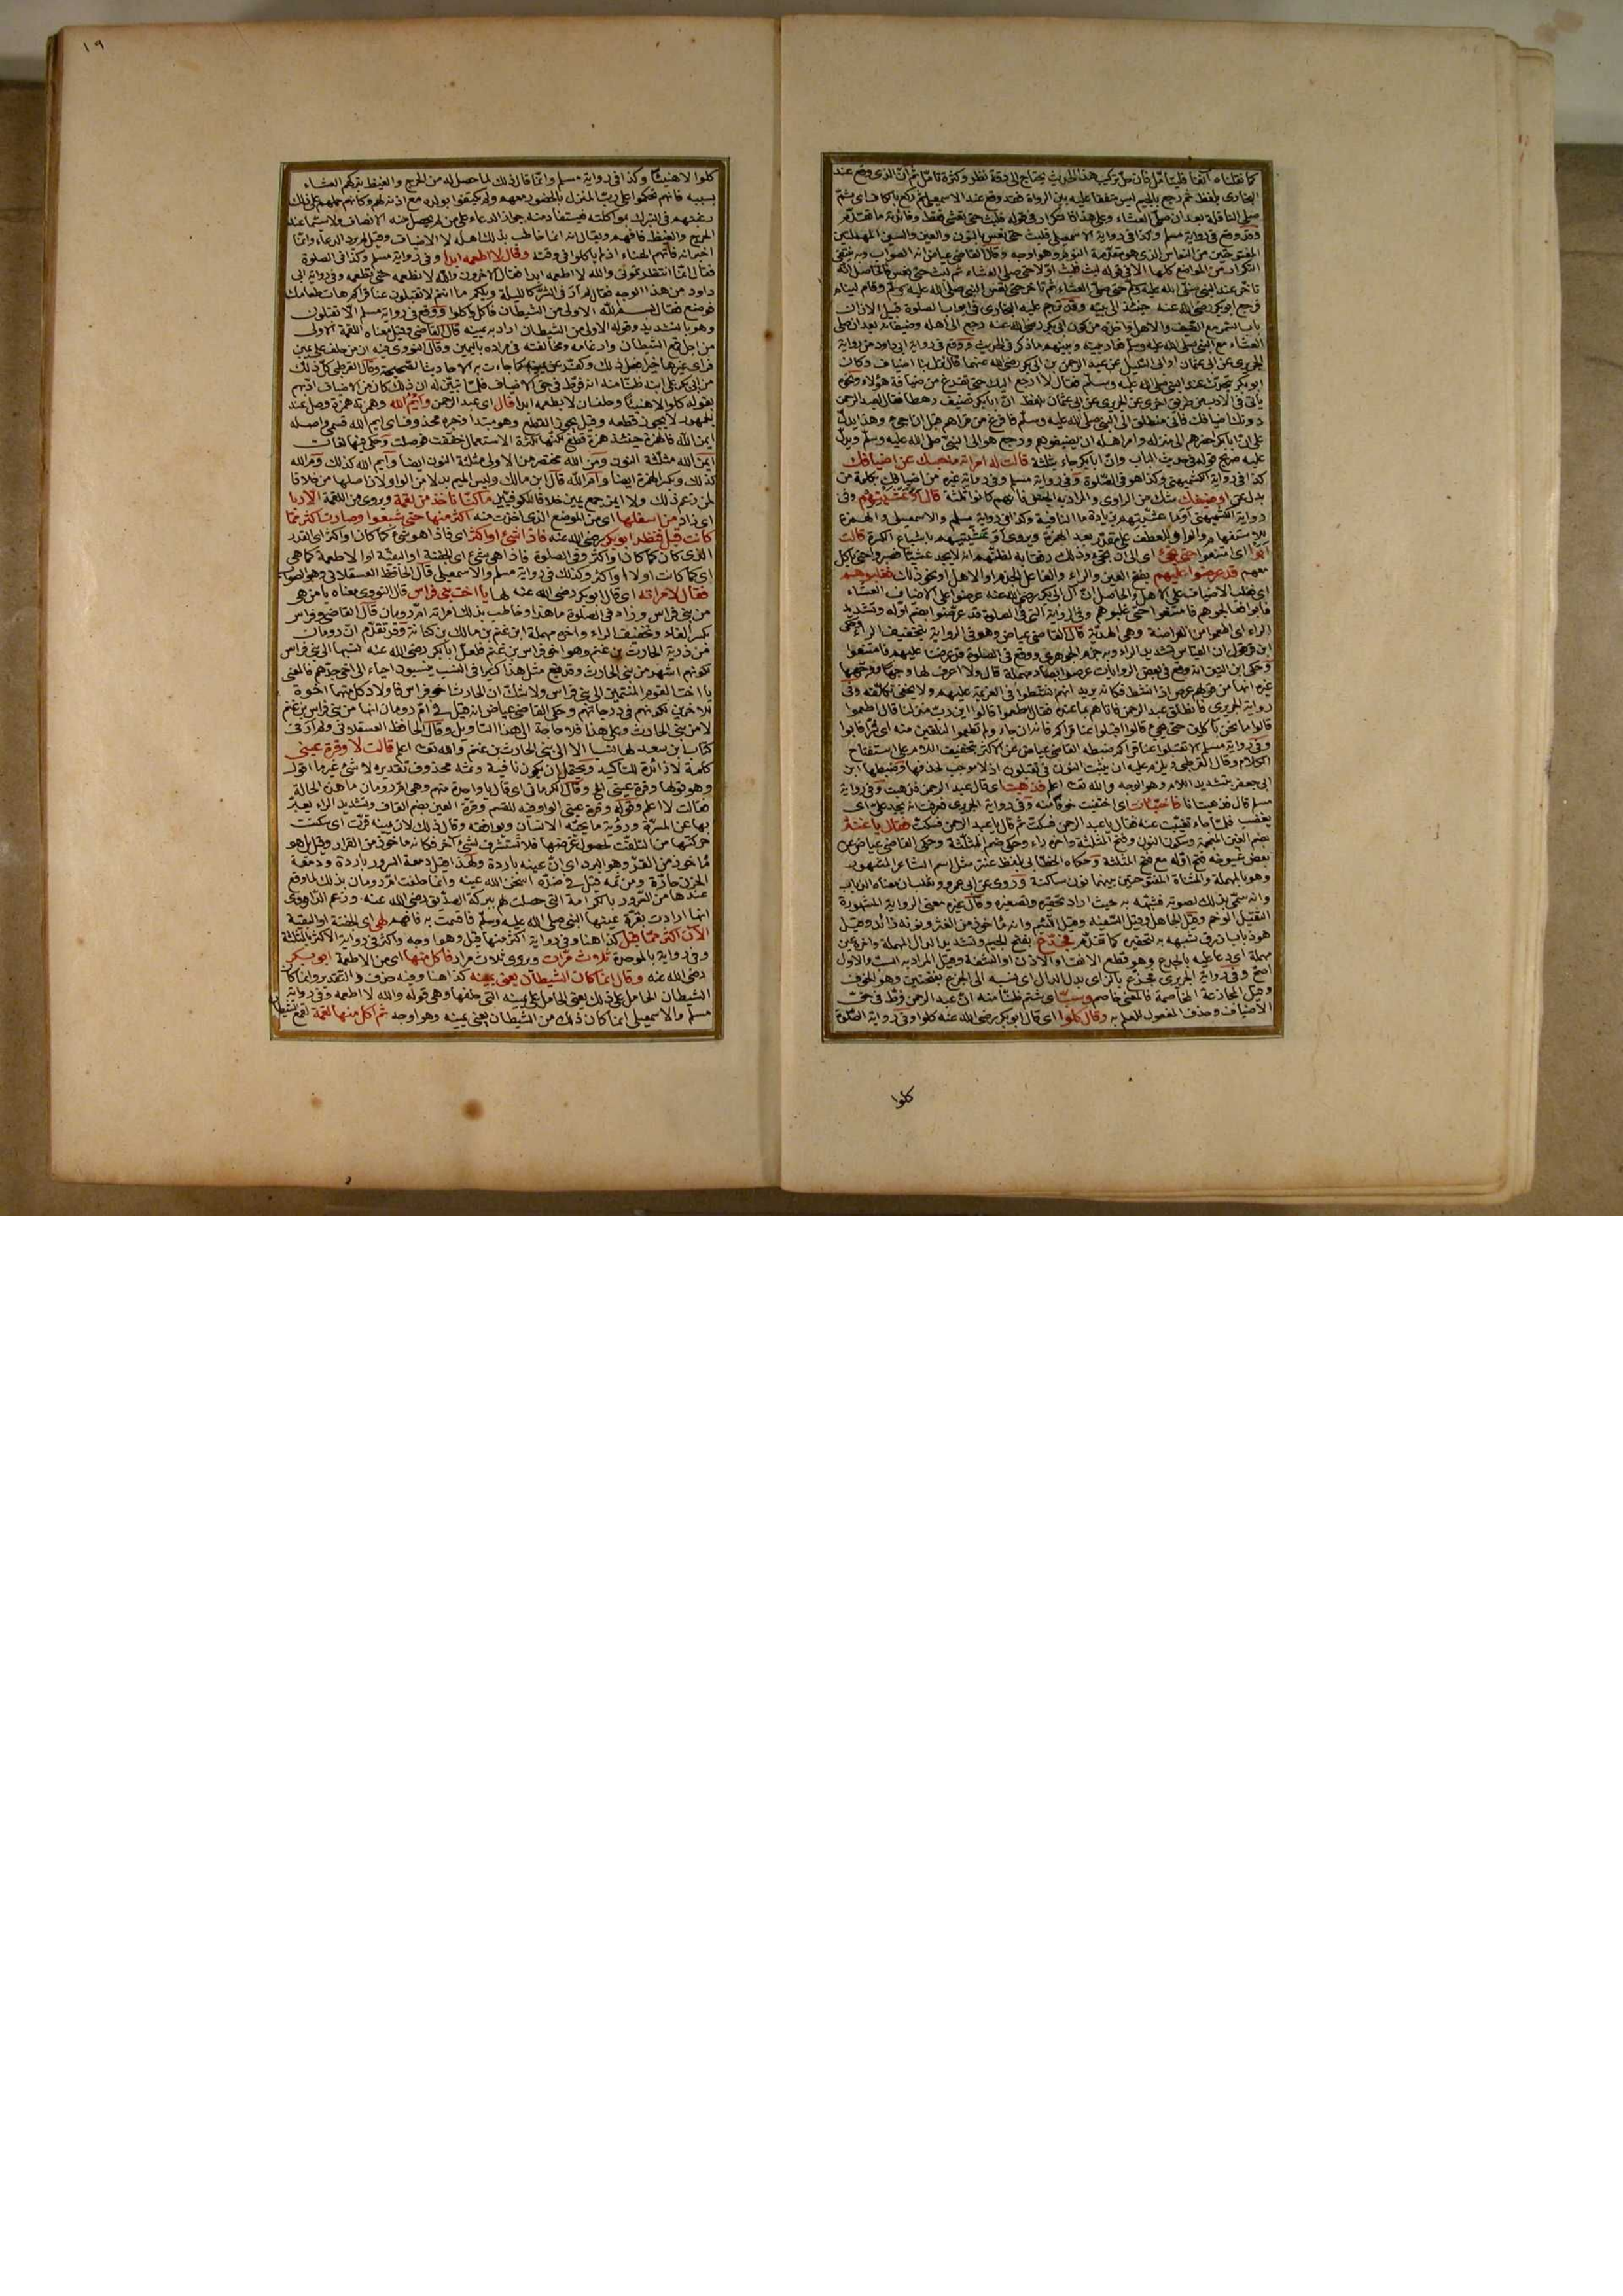 كما نقلناه آنفا فليتأمّل فان حلّ تركيب هذا الحديث يحتاج الى دقة نظر وكثرة تأمّل ثم انّ الذى وقع عند
البخارى بلفظ ثم رجع بالجيم ليس متفقا عليه بين الرواة فقد وقع عند الاسمعيلى ثم ركع بالكاف اى ثم
صلى النافلة بعد ان صلى العشاء وعلى هذا فالتكرار فى قوله فلبث حتى تعشى فقط وفائدته ما تقدّم
وقد وقع فى رواية مسلم وكذا فى رواية الاسمعيلى فلبث حتى نعس بالنون والعين والسين المهملتين
المفتوحتين من النعاس الذى هو مقدّمة النوم وهو اوجه وقال القاضى عياض انه الصواب وبه ينتفى
التكرار من المواضع كلها الا فى قوله لبث فلبث اوّلا حتى صلى العشاء ثم لبث حتى نعس فالحاصل انّه
تأخر عند النبى صلى الله عليه وسلم حتى صلى العشاء ثم تأخر حتى نعس النبى صلى الله عليه وسلم وقام لينام
فرجع ابو بكر رضى الله عنه حينئذ الى بيته وقد ترجم عليه البخارى فى ابواب الصلوة قبيل الاذان
باب السمر مع الضيف والاهل
العشاء مع النبى صلى الله عليه وسلم
الجريرى عن ابى عثمان او ابى السليل عن عبد الرحمن بن ابى بكر رضى الله عنهما قال نزل بنا اضياف وكان
ابو بكر يتحدّث عند النبى صلى الله عليه وسلم فقال لا ارجع اليك حتى تفرغ من ضيافة هؤلاء ونحوه
يأتى فى الادب من طريق اخرى عن الجريرى عن ابى عثمان بلفظ انّ ابا بكر تضيف رهطا فقال لعبد الرحمن
دونك اضيافك فانى منطلق الى النبى صلى الله عليه وسلم فافرغ من قراهم قبل ان اجىء وهذا يدلّ
على انّ ابا بكر احضرهم الى منزله وامر اهله ان يضيفوهم ورجع هو الى النبىّ صلى الله عليه وسلم ويدلّ
عليه صريح قوله فى حديث الباب وانّ ابا بكر جاء بثلثة قالت له امراته ما حبسك عن اضيافك
كذا فى رواية الكشميهنى وكذا هو فى الصّلوة وفى رواية مسلم وفى رواية غيره من اضيافك بكلمة من
بدل عن او ضيفك شك من الراوى والمراد به الجنس فانهم كانوا ثلثة قال او عشّيتهم وفى
رواية الكشميهنى او ما عشّيتهم بزيادة ما النافية وكذا فى رواية مسلم والاسمعيلى والهمزة
للاستفهام والواو للعطف على مقدّر بعد الهمزة ويروى او عشّيتيهم باشباع الكسرة قالت
ابوا اى امتنعوا حتى تجىء اى الى ان تجىء
معهم قد عرضوا عليهم بفتح العين والراء والفاعل الخدم او الاهل او نحو ذلك فغلبوهم
اى فغلب الاضياف على الاهل والحاصل انّ آل ابى بكر رضى الله عنه عرضوا على الاضياف العشاء
فأبوا فعالجوهم فامتنعوا حتى غلبوهم وفى الرواية التى فى الصلوة قد عرّضوا بضم اوّله وتشديد
الراء اى اطعموا من العراضة وهى الهديّة قال القاضى عياض وهو فى الرواية بتخفيف الراء وحكى
ابن قرقول ان القياس تشديد الراء وبه جزم الجوهرى ووقع فى الصلوة قد عرضنا عليهم فامتنعوا
وحكى ابن التين انه وقع فى بعض الروايات عرصوا بصاد مهملة قال ولا اعرف لها وجها ووجّهها
غيره انها من قولهم عرص اذا نشط فكانه يريد انهم نشطوا فى العزيمة عليهم ولا يخفى تكلّفه وفى
رواية الجريرى فانطلق عبد الرحمن فأتاهم بما عنده فقال اطعموا قالوا اين ربّ منزلنا قال اطعموا
قالوا ما نحن بآكلين حتى يجىء قالوا اقبلوا عنا قراكم فانه ان جاء ولم تطعموا لنلقين منه اى شرّا فابوا
وفى رواية مسلم الا تقبلوا عنا قراكم ضبطه القاضى عياض عن الاكثر بتخفيف اللام على استفتاح
الكلام وقال القرطبى ويلزم عليه ان يثبت النون فى تقبلون اذ لا موجب لحذفها وضبطها ابن
ابى جعفر بتشديد اللام وهو الوجه والله تعالى اعلم فذهبت اى قال عبد الرحمن فذهبت وفى رواية
مسلم قال فذهبت انا فاختبأت اى اختفيت خوفا منه وفى رواية الجريرى فعرفت انه يجد علىّ اى
يغضب فلما جاء تغيّبت عنه فقال يا عبد الرحمن فسكتّ ثم قال يا عبد الرحمن فسكتّ فقال يا غنثر
بضم الغين المعجمة وسكون النون وفتح المثلثة وآخره راء وحكى ضم المثلّثة وحكى القاضى عياض عن
بعض شيوخه فتح اوّله مع فتح المثلثة وحكاه الخطّابى بلفظ عنتر مثل اسم الشاعر المشهور
وهو بالمهملة والمثناة المفتوحتين بينهما نون ساكنة وروى عن ابى عمرو
وانه سمّى بذلك لصوته فشبّهه به حيث اراد تحقيره وتصغيره وقال غيره معنى الرواية المشهورة
الثقيل الوخم وقيل الجاهل وقيل السّفيه وقيل اللّئيم وانه مأخوذ من الغثر ونونه زائدة وقيل
هو ذباب ازرق شبّهه به لتحقيره كما تقدّم فجدّع بفتح الجيم وتشديد الدال المهملة وآخره عين
مهملة اى دعا عليه بالجدع وهو قطع الانف او الاذن او الشفة وقيل المراد به السبّ والاول
اصحّ وفى رواية الجريرى فجزّع بالزاى بدل الدال اى نسبه الى الجزع بفتحتين وهو الخوف
وقيل المجازعة المخاصمة فالمعنى خاصم وسبّ اى شتم ظنّا منه انّ عبد الرحمن فرّط فى حقّ
الاضياف وحذف المفعول للعلم به وقال كلوا اى قال ابو بكر رضى الله عنه كلوا وفى رواية الصّلوة
كلوا
١٩
كلوا لا هنيئا وكذا فى رواية مسلم وانما قال ذلك لما حصل له من الحرج والغيظ بتركهم العشاء
بسببه فانهم تحكّموا على ربّ المنزل بالحضور معهم ولم يكتفوا بولده مع اذنه لهم وكانهم حملهم على ذلك
رغبتهم فى التبرك بمواكلته فيستفاد منه جواز الدعاء على من لم يحصل منه الانصاف ولا سيّما عند
الحرج والغيظ فافهم ويقال انه انما خاطب بذلك اهله لا الاضياف وقيل لم يرد الدعاء وانما
اخبر انه فاتهم الهناء اذ لم ياكلوا فى وقته وقال لا اطعمه ابدا وفى رواية مسلم وكذا فى الصلوة
فقال انما انتظرتمونى والله لا اطعمه ابدا فقال الآخرون والله لا نطعمه حتى تطعمه وفى رواية ابى
داود من هذا الوجه فقال لم أر فى الشرّ كالليلة ويلكم ما انتم لا تقبلون عنا قراكم هات طعامك
فوضع فقال بسم الله الاولى من الشيطان فاكل واكلوا ووقع فى رواية مسلم الّا تقبلون
وهو بالتشديد وقوله الاولى من الشيطان اراد به يمينه قال القاضى وقيل معناه اللقمة الاولى
من اجل قمع الشيطان وارغامه ومخالفته فى مراده باليمين وقال النووى فيه ان من حلف على يمين
فرأى غيرها خيرا فعل ذلك وكفّر عن يمينه كما جاءت به الاحاديث الصّحيحة وقال القرطبى كلّ ذلك
من ابى بكر على ابنه ظنّا منه انه فرّط فى حق الاضياف فلمّا تبيّن له ان ذلك كان من الاضياف ادّبهم
بقوله كلوا لا هنيئا وحلف ان لا يطعمه ابدا قال اى عبد الرحمن وأيم الله وهمزته همزة وصل عند
الجمهور لا يجوز قطعه وقيل يجوز القطع وهو مبتدأ وخبره محذوف اى ايم الله قسمى واصله
ايمن الله فالهمزة حينئذ همزة قطع لكنها لكثرة الاستعمال خففت فوصلت وحكى فيها لغات
ايمن الله مثلثة النون ومن الله مختصر من الاولى مثلثة النون ايضا وأيم الله كذلك وم الله
كذلك وبكسر الهمزة ايضا وام الله قال ابن مالك وليس الميم بدلا من الواو ولا اصلها من خلافا
لمن زعم ذلك ولا ايمن جمع يمين خلافا للكوفيين ما كنا نأخذ من لقمة ويروى من اللقمة الا ربا
اى زاد من اسفلها اى من الموضع الذى اخذت منه اكثر منها حتى شبعوا وصارت اكثر ممّا
كانت قبل فنظر ابو بكر رضى الله عنه فاذا شىء او اكثر اى فاذا هو شىء كما كان او اكثر اى القدر
الذى كان كما كان او اكثر وفى الصلوة فاذا هى شىء اى الجفنة او البقيّة او الاطعمة كما هى
اى كما كانت اولا او اكثر وكذلك فى رواية مسلم والاسمعيلى قال الحافظ العسقلانى وهو الصواب
فقال لامراته اى قال ابو بكر رضى الله عنه لها يا اخت بنى فراس قال النووى معناه يا من هى
من بنى فراس وزاد فى الصلوة ما هذا وخاطب بذلك امراته امّ رومان قال القاضى وفراس
بكسر الفاء وتخفيف الراء وآخره مهملة ابن غنم بن مالك بن كنانة وقد تقدّم انّ ام رومان
من ذرية الحارث بن غنم وهو اخو فراس بن غنم فلعلّ ابا بكر رضى الله عنه نسبها الى بنى فراس
لكونهم اشهر من بنى الحارث وقد يقع مثل هذا كثيرا فى النسب ينسبون احيانا الى اخى جدّهم فالمعنى
يا اخت القوم المنتمين الى بنى فراس ولا شكّ ان الحارث اخو فراس فاولاد كل منهما اخوة
للآخرين لكونهم فى درجاتهم وحكى القاضى عياض انه قيل فى امّ رومان انها من بنى فراس بن غنم
لا من بنى الحارث وعلى هذا فلا حاجة الى هذا التأويل وقال الحافظ العسقلانى ولم أر فى
كتاب ابن سعد لها نسبا الا الى بنى الحارث بن غنم والله تعالى اعلم قالت لا وقرة عينى
كلمة لا زائدة للتأكيد ويحتمل ان يكون نافية وثمّة محذوف تقديره لا شىء غير ما اقول
وهو قولها وقرة عينى
فقالت لا اعلم وقوله وقرة عينى الواو فيه للقسم وقرّة العين بضم القاف وتشديد الراء يعبّر
بها عن المسرّة ورؤية ما يحبّه الانسان ويوافقه وقال ذلك لان عينه قرّت اى سكنت
حركتها من التلفّت لحصول غرضها فلا تستشرف لشىء آخر فكانه ماخوذ من القرار وقيل بل هو
مأخوذ من القرّ وهو البرد اى انّ عينه باردة ولهذا قيل دمعة السرور باردة ودمعة
الحزن حارّة ومن ثمه قيل فى ضدّه اسخن الله عينه وانما حلفت امّ رومان بذلك لما وقع
عندها من السّرور بالكرامة التى حصلت لهم ببركة الصدّيق رضى الله عنه وزعم الدّاودى
انها ارادت بقرّة عينها النبى صلى الله عليه وسلم فاقسمت به فافهم لهى اى الجفنة او البقية
الآن اكثر ممّا قبل كذا هنا وفى رواية اكثر منها قبل وهو اوجه واكثر فى رواية الاكثر بالمثلثة
وفى رواية بالموحدة ثلاث مرّات ويروى ثلاث مرار فاكل منها اى من الاطعمة ابو بكر
رضى الله عنه وقال انما كان الشيطان يعنى يمينه كذا هنا وفيه حذف والتقدير وانما كان
الشيطان الحامل على ذلك يعنى الحامل على يمينه التى حلفها وهى قوله والله لا اطعمه وفى رواية
مسلم والاسمعيلى انما كان ذلك من الشيطان يعنى يمينه وهو اوجه ثم اكل منها لقمة لقمع الشيطان